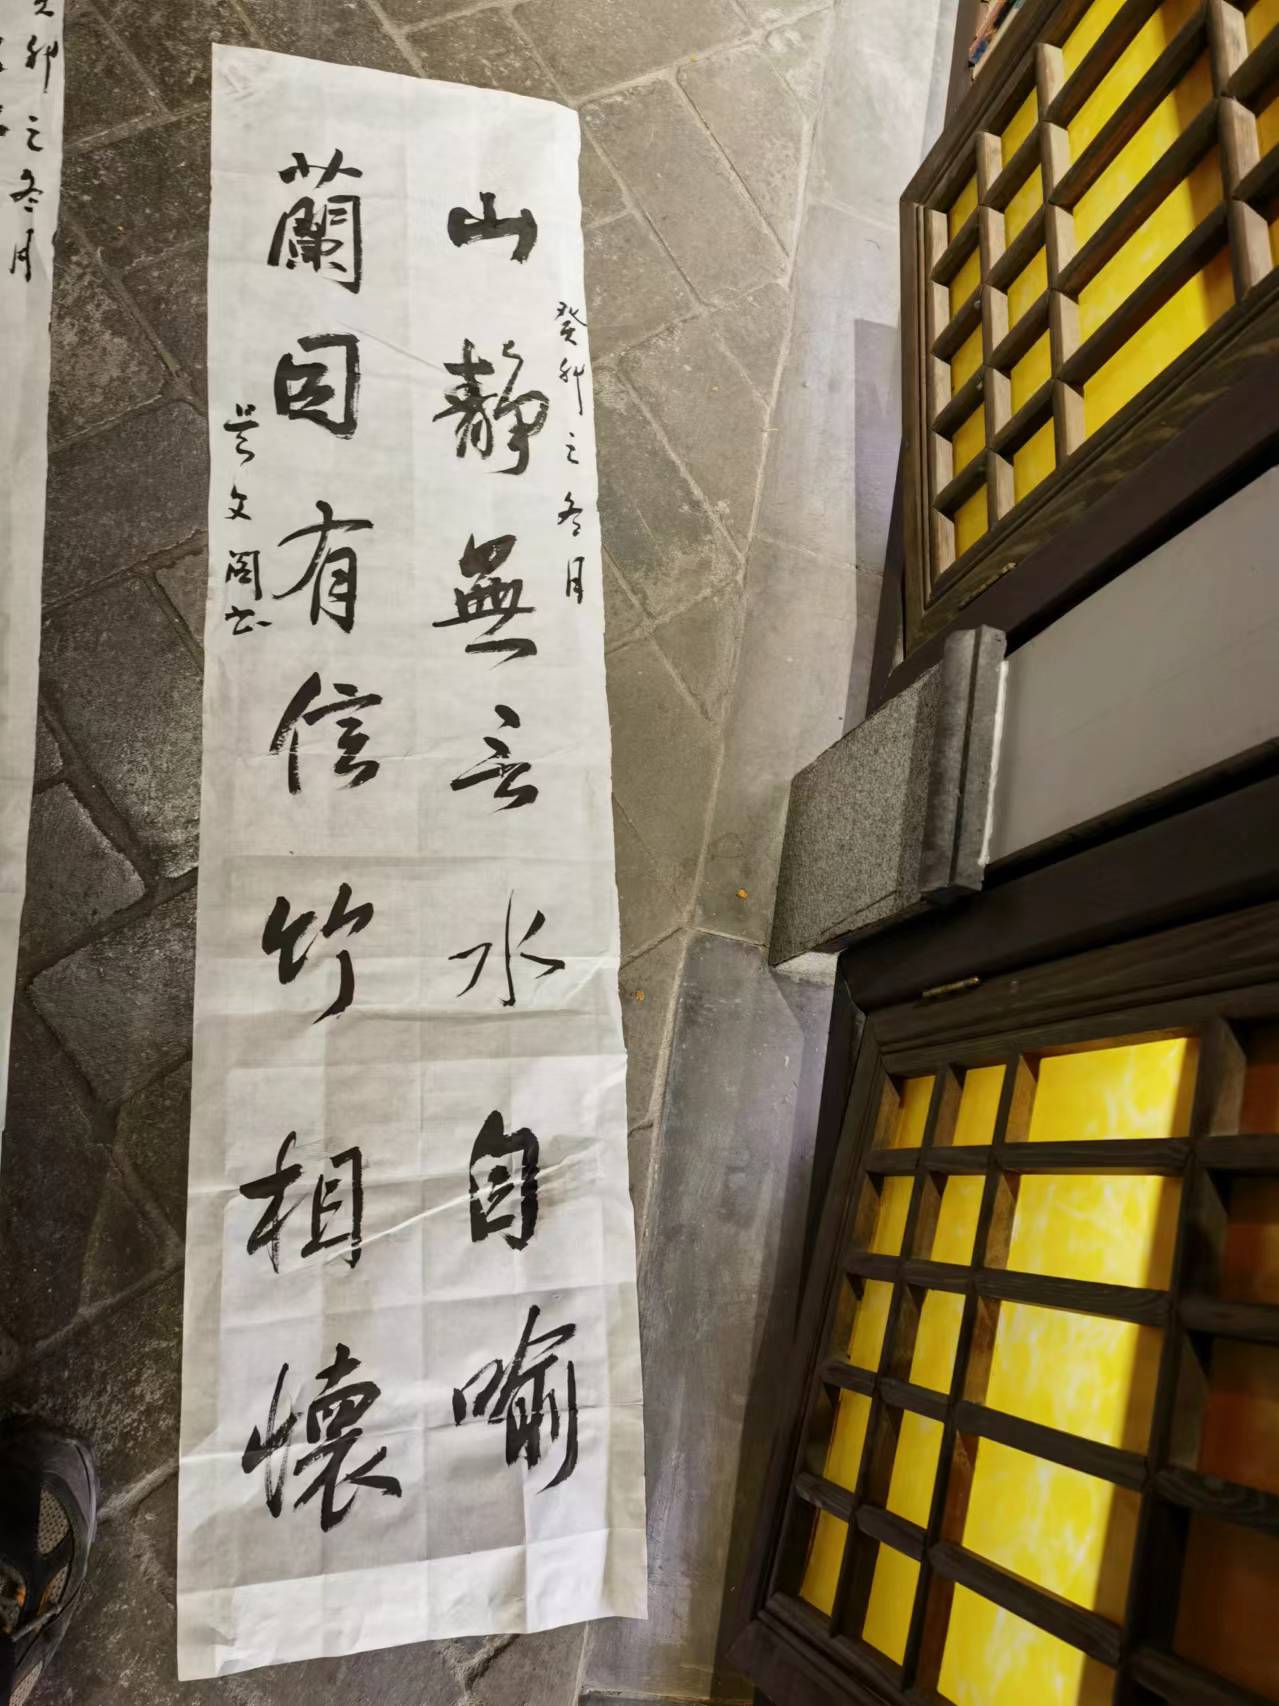 癸卯之冬月
山靜無言水自喻
蘭因有信竹相懷
吴文阁书
癸卯之冬月